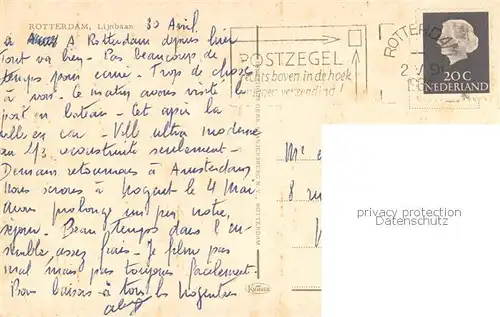 ROTTERDAM, Lijnbaan
30 Avril
A Rotterdam depuis hier
tout va bien - Pas beaucoup de
temps pour écrire - Trop de choses
à voir - Ce matin avons visité le
port en bateau - Cet après la
ville en car - Ville ultra moderne
au 1/3 reconstruite seulement -
Demain retournons à Amsterdam
Nous serons à Nogent le 4 Mai
avons prolongé un peu notre
séjour - Beau temps dans l'en-
semble assez frais - Je
mal mais pas toujours facilement -
Bons baisers à tous les Nogentais
POSTZEGEL
rechts boven in de hoek
verzending!
ROTTERDAM
20 C
NEDERLAND
ROTTERDAM
Mr
8 rue
privacy protection
Datenschutz